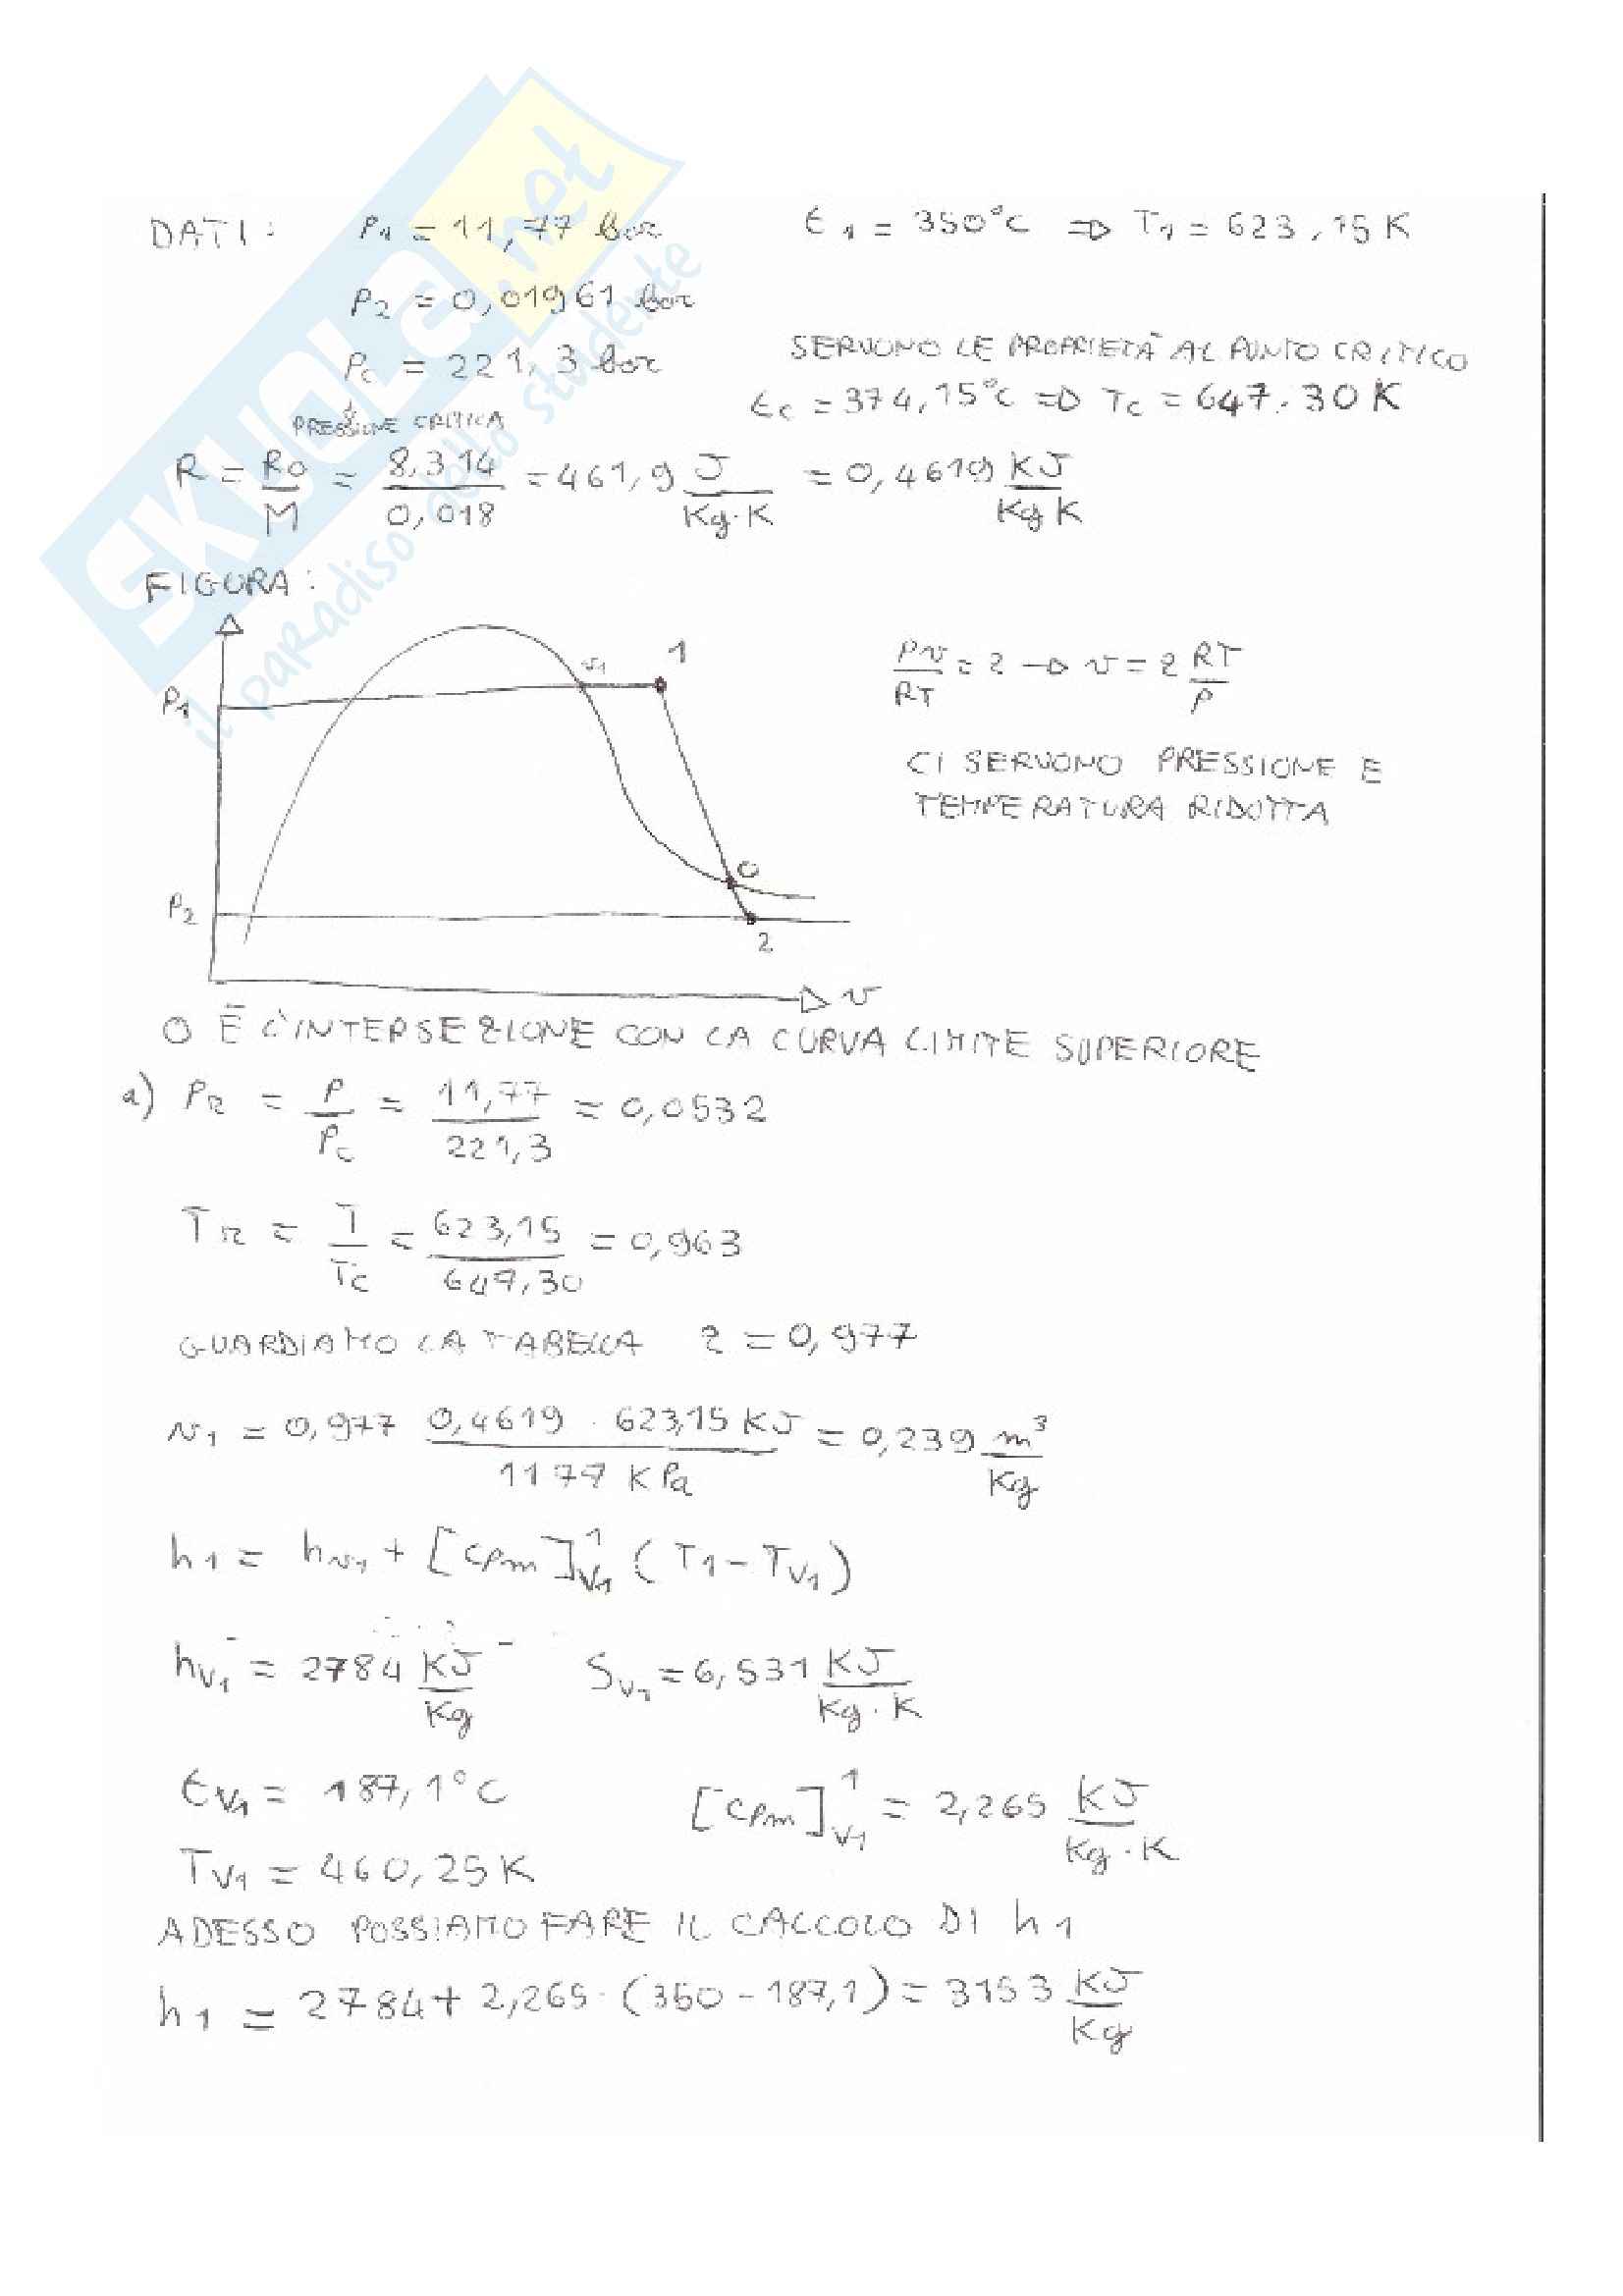 SKUOLA.net
il paradiso dello studente
DATI: P1 = 11,77 bar t1 = 350°C ⇒ T1 = 623,15 K
P2 = 0,01961 bar
SERVONO LE PROPRIETÀ AL PUNTO CRITICO
Pc = 221,3 bar
tc = 374,15°C ⇒ Tc = 647.30 K
PRESSIONE CRITICA
R = R0/M = 8,314/0,018 = 461,9 J/(Kg·K) = 0,4619 KJ/(Kg K)
FIGURA:
P1 v1 1
Pv/RT = z → v = z RT/P
CI SERVONO PRESSIONE E
TEMPERATURA RIDOTTA
P2 0 2
v
O È L'INTERSEZIONE CON LA CURVA LIMITE SUPERIORE
a) PR = P/Pc = 11,77/221,3 = 0,0532
TR = T/Tc = 623,15/647,30 = 0,963
GUARDIAMO LA TABELLA z = 0,977
v1 = 0,977 0,4619 · 623,15 KJ / 1177 KPa = 0,239 m³/Kg
h1 = hv1 + [cpm]v1^1 (T1 - Tv1)
hv1 = 2784 KJ/Kg Sv1 = 6,531 KJ/(Kg·K)
tv1 = 187,1°C [cpm]v1^1 = 2,265 KJ/(Kg·K)
Tv1 = 460,25 K
ADESSO POSSIAMO FARE IL CALCOLO DI h1
h1 = 2784 + 2,265 · (350 - 187,1) = 3153 KJ/Kg